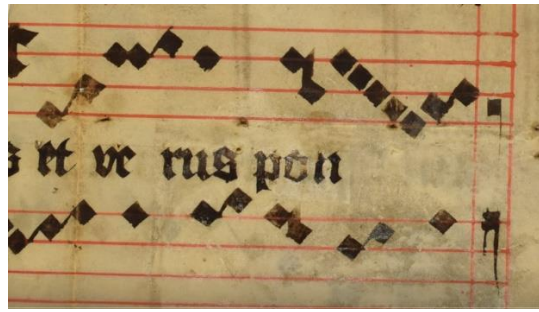 s et ve rus pon